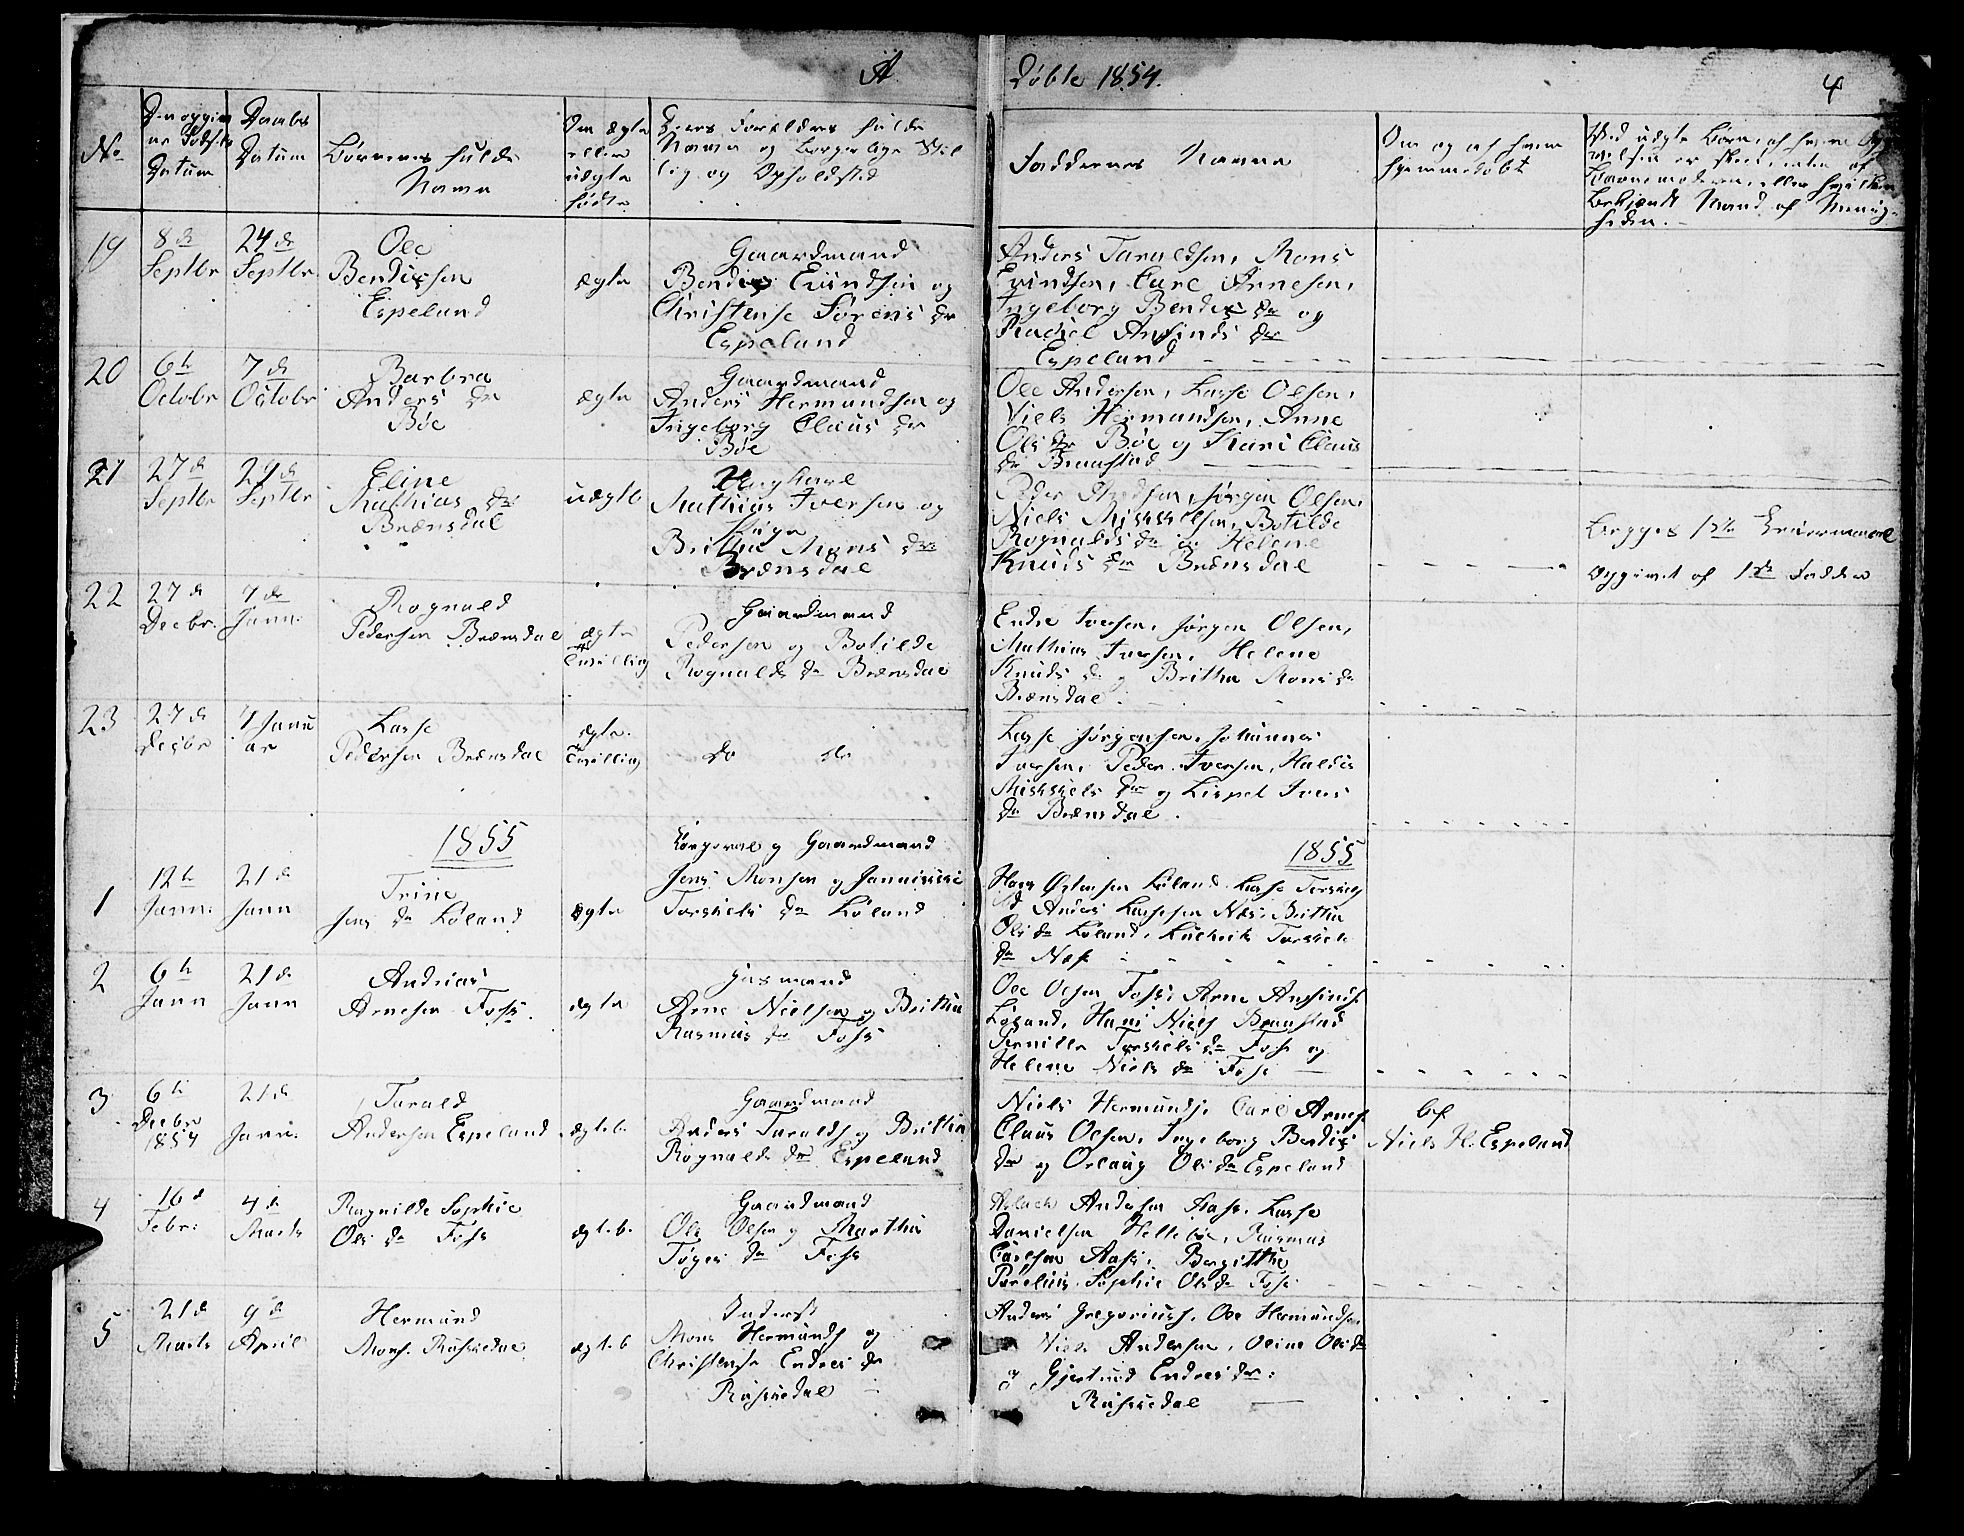 A.
Døbte 1854.
4
No
Den opgivne Fødsels Datum
Daabs Datum
Børnenes fulde Navne
Om ægte eller uægte fødte
Deres Forældres fulde Navne og borgerlige Stilling og Opholdsted
Faddernes Navne
Om og af hvem hjemmedøbt
Ved uægte Børn, af hvem
Barnemoderen, eller hvilken
bekjendt Mand af Menigheden.
19
8de Septbr
24de Septbr
Ole
Bendixsen
Espeland
ægte
Gaardmand
Bendix Eiindsen og
Christense Sørens Dr
Espeland
Anders Taraldsen, Mons
Evindsen, Carl Arnesen,
Ingeborg Bendix Dr og
Rachel Ansinds Dr
Espeland
20
6te Octobr
7de Octobr
Barbra
Anders Dr
Bøe
ægte
Gaardmand
Anders Hermundsen og
Ingeborg Claus Dr
Bøe
Ole Andersen, Lasse Olsen,
Niels Hermundsen, Anne
Ols Dr Bøe og Kari Claus
Dr Braastad
21
27de Septbr
29de Septbr
Eline
Mathias Dr
Brænsdal
uægte
Ungkarl
Mathias Iversen og
Pige
Britha Mons Dr
Brænsdal
Peder Jørgen Olsen,
Niels Mikkelsen, Botilde
Rognalds Dr og Helene
Knuds Dr Brænsdal
Begges 1ste Leiermaal
Opgivet af 1ste Fadder
22
27de Decbr.
7de Janu.
Rognald
Pedersen Brænsdal
ægte
Tvilling
Gaardmand
Pedersen og Botilde
Rognalds Dr Brænsdal
Endre Iversen, Jørgen Olsen,
Mathias Iversen, Helene
Knuds Dr og Britha Mons Dr
Brænsdal
23
27de Decbr
7 Januar
Lasse
Pedersen Brænsdal
ægte.
Tvilling
Do do
Lasse Jørgensen, Johannes
Iversen, Peder Iversen, Haldis
Mikkels Dr og Lispet Ivers
Dr Brænsdal.
1855
1855
1
12te Janu.
21de Janu
Trine
Jens Dr Løland
ægte
Korporal og Gaardmand
Jens Monsen og
Torkels Dr Løland
Hans Østensen Løland, Lasse Torkelsen
Anders Lassesen Næs, Britha
Ols Dr Løland, Torkels
Dr Næs
2
6te Janu
21de Janu
Andreas
Arnesen Foss.
ægte
Husmand
Arne Nielsen og Britha
Rasmus Dr Foss
Ole Olsen Foss, Arne Ansinds.
Løland, Hans Niels. Braastad
Pernille Torkels Dr Foss og
Helene Niels Dr Foss
3
6te Decbr 1854
21de Janu.
Tarald
Andersen Espeland
ægteb.
Gaardmand
Anders Taralds. og Britha
Rognalds Dr Espeland
Niels Hermunds. Carl Arnes.
Claus Olsen, Ingeborg Bendix
Dr og Orlaug Ols Dr Espeland
af
Niels H. Espeland
4
16de Febr.
4de Marts
Ragnilde Sophie
Ols Dr Foss
ægteb.
Gaardmand
Ole Olsen og Martha
Tøges Dr Foss
Aslack Andersen Aase, Lasse
Danielsen Hellebøe, Rasmus
Carlsen Aase, Bergitthe
Parelius, Sophie Ols Dr Foss
5
21de Marts
9de April
Hermund
Mons. Russedal
ægteb
Inderst
Mons Hermunds. og
Christense Endres Dr
Russedal
Anders Gregorius. Ole Hermundsen,
Niels Andersen, Oline Ols Dr
og Gjertrud Endres Dr.
Russedal